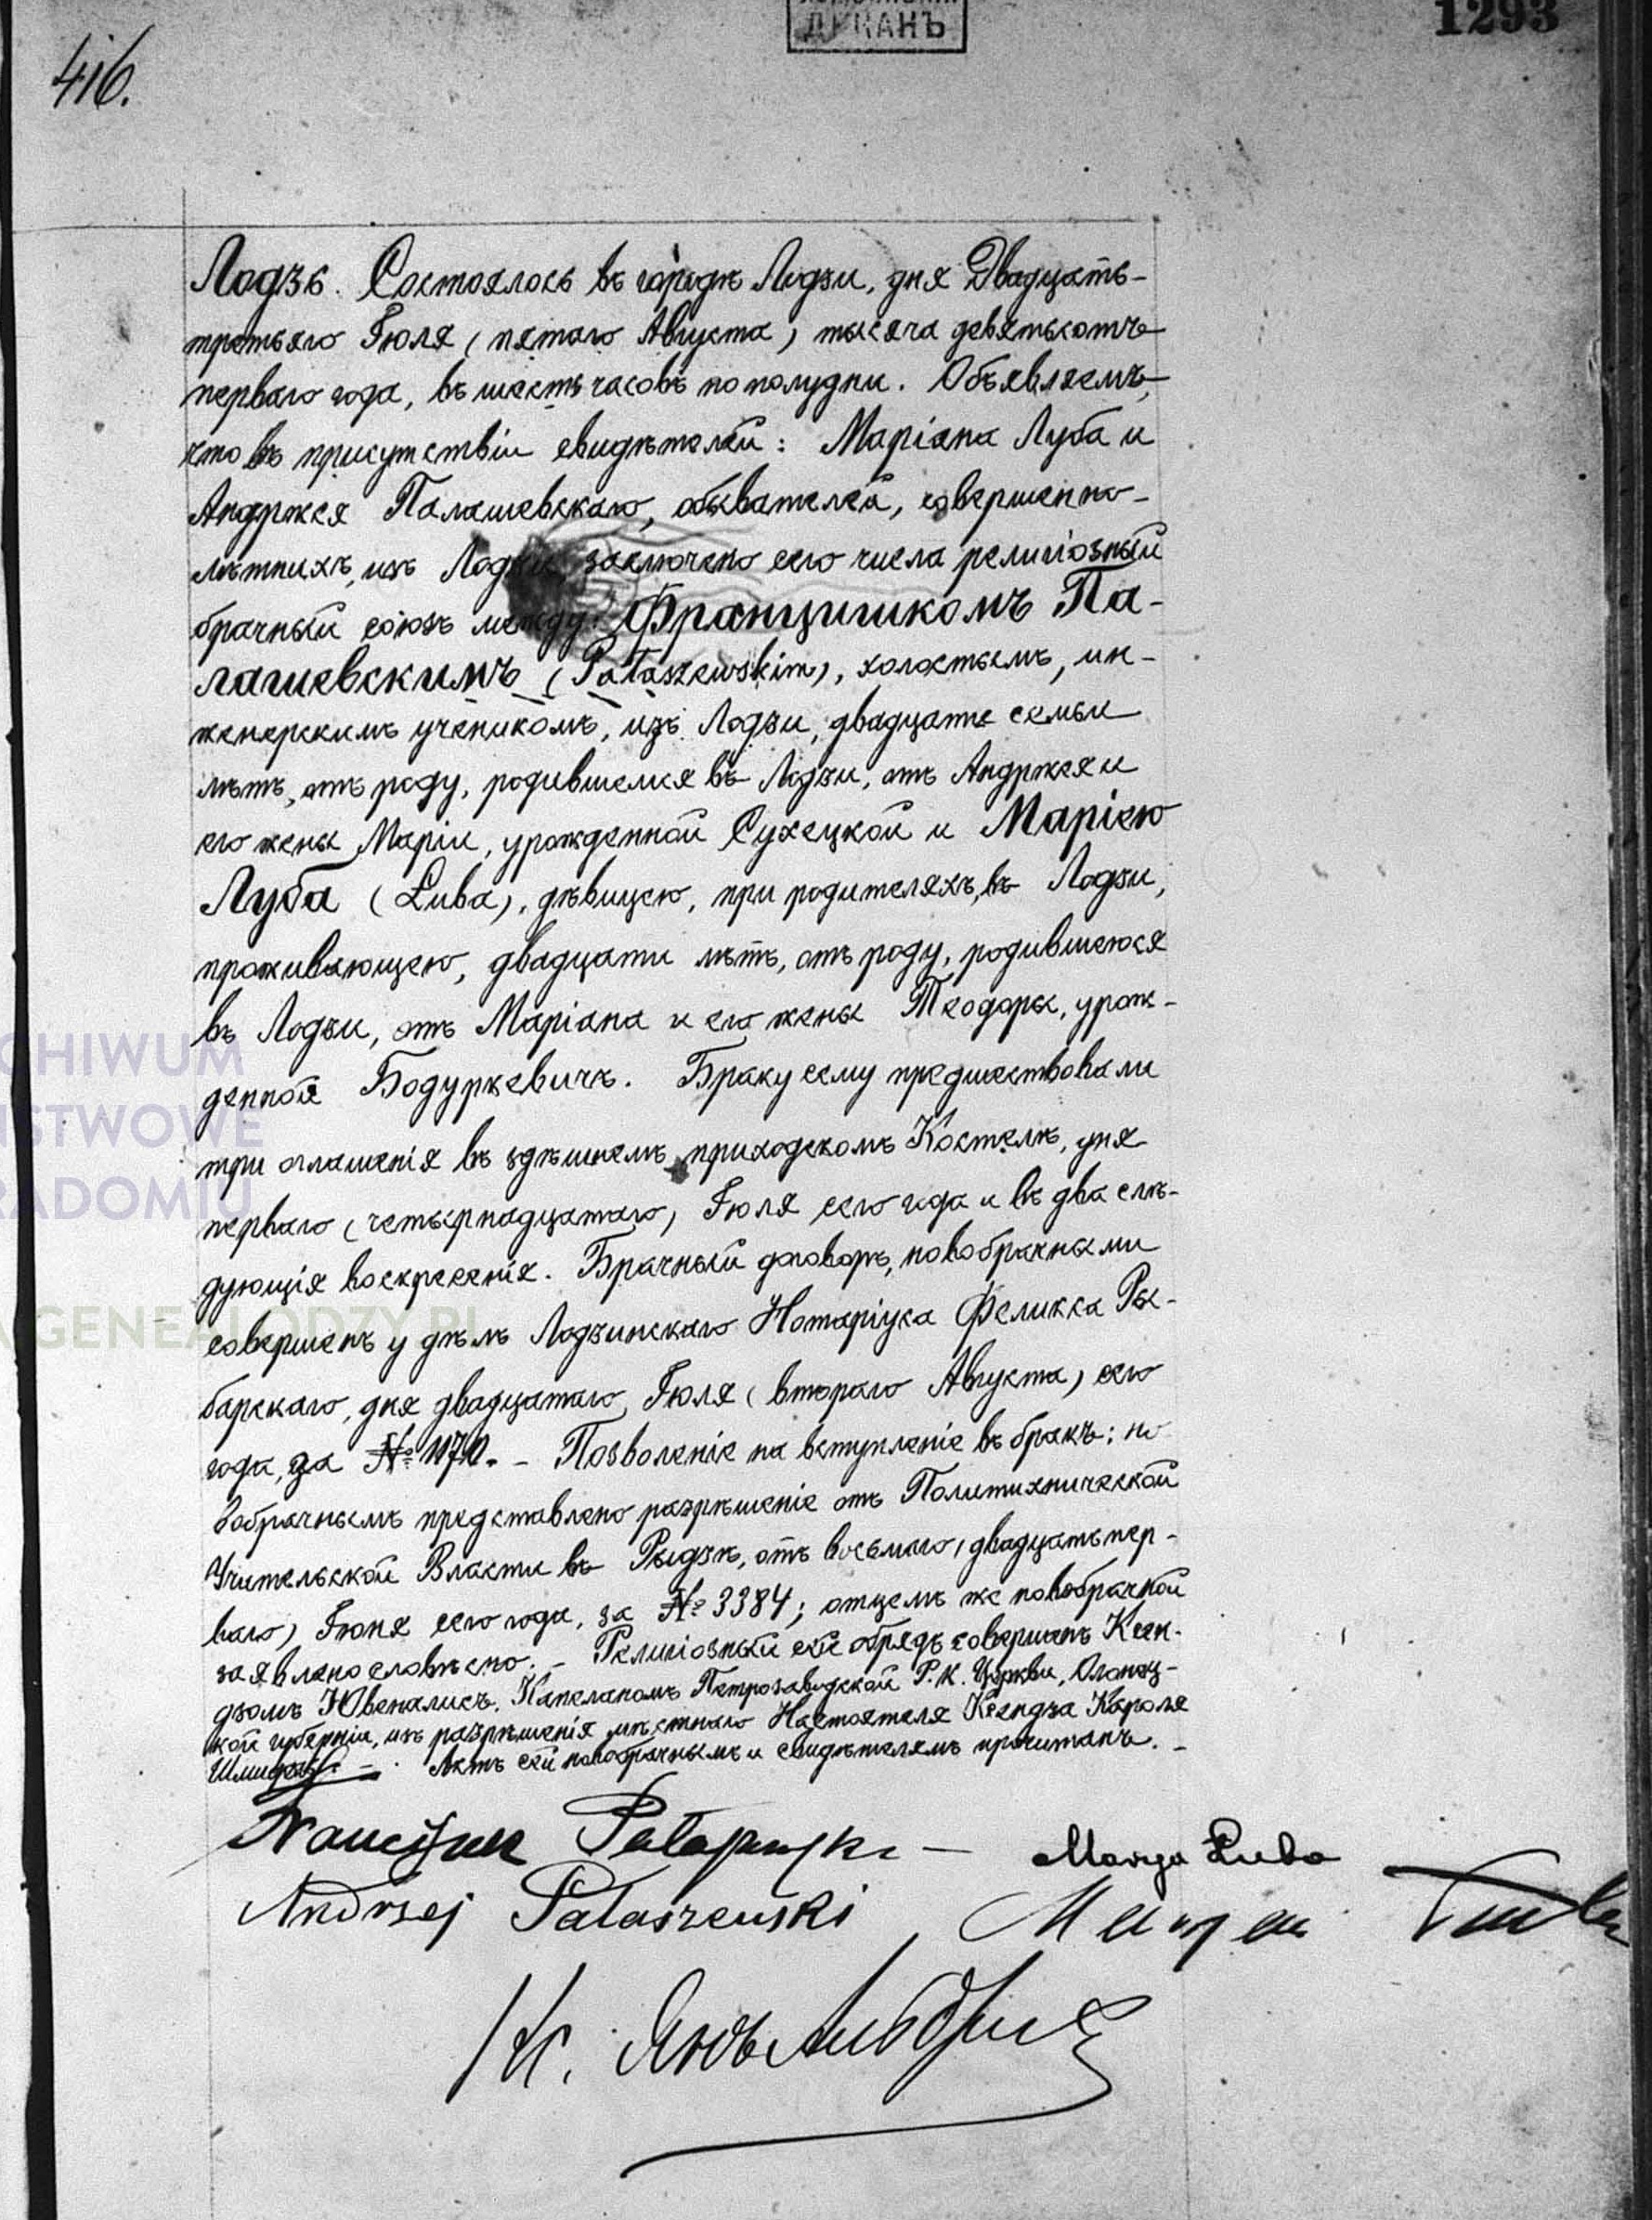 1293
ДЕКАНЪ
416.
Лодзь. Состоялось въ городѣ Лодзи, дня Двадцать-
третьяго Іюля (пятаго Августа) тысяча девятьсотъ
перваго года, въ шесть часовъ по полудни. Объявляемъ,
что въ присутствіи свидѣтелей: Маріана Луба и
Андржея Палашевскаго, обывателей, совершенно-
лѣтнихъ, изъ Лодзи, заключено сего числа религіозный
брачный союзъ между: Францишкомъ Па-
лашевскимъ (Pałaszewskim), холостымъ, ин-
женерскимъ ученикомъ, изъ Лодзи, двадцати семьи
лѣтъ, отъ роду, родившемся въ Лодзи, отъ Андржея и
его жены Маріи, урожденной Сухецкой и Маріею
Луба (Łuba), дѣвицею, при родителяхъ, въ Лодзи,
проживающею, двадцати лѣтъ, отъ роду, родившеюся
въ Лодзи, отъ Маріана и его жены Теодоры, урож-
денной Бодуркевичъ. Браку сему предшествовали
три оглашенія въ здѣшнемъ приходскомъ Костелѣ, дня
перваго (четырнадцатаго) Іюля сего года и въ два слѣ-
дующія воскресенія. Брачный договоръ, новобрачными
совершенъ у дѣлъ Лодзинскаго Нотаріуса Феликса Ры-
барскаго, дня двадцатаго Іюля (втораго Августа) сего
года, за №. – Позволеніе на вступленіе въ бракъ: но-
вобрачнымъ представлено разрѣшеніе отъ Политихнической
Учительской Власти въ Рыдзѣ, отъ восьмаго (двадцать пер-
ваго) Іюня сего года, за № 3384; отцемъ же новобрачной
заявлено словѣсно. – Религіозный сей обрядъ совершенъ Ксен-
дзомъ Ювеналисъ. Капеланомъ Петрозаводской Р. К. Церкви, Олонец-
кой губерніи, изъ разрѣшенія мѣстнаго Настоятеля Ксендза Кароля
Шмидль. – Актъ сей новобрачнымъ и свидѣтелямъ прочитанъ. –
Franciszek Pałaszewski – Marya Łuba
Andrzej Pałaszewski Łuba
К.
ARCHIWUM
PAŃSTWOWE
RADOMIU
GENEALODZY.PL